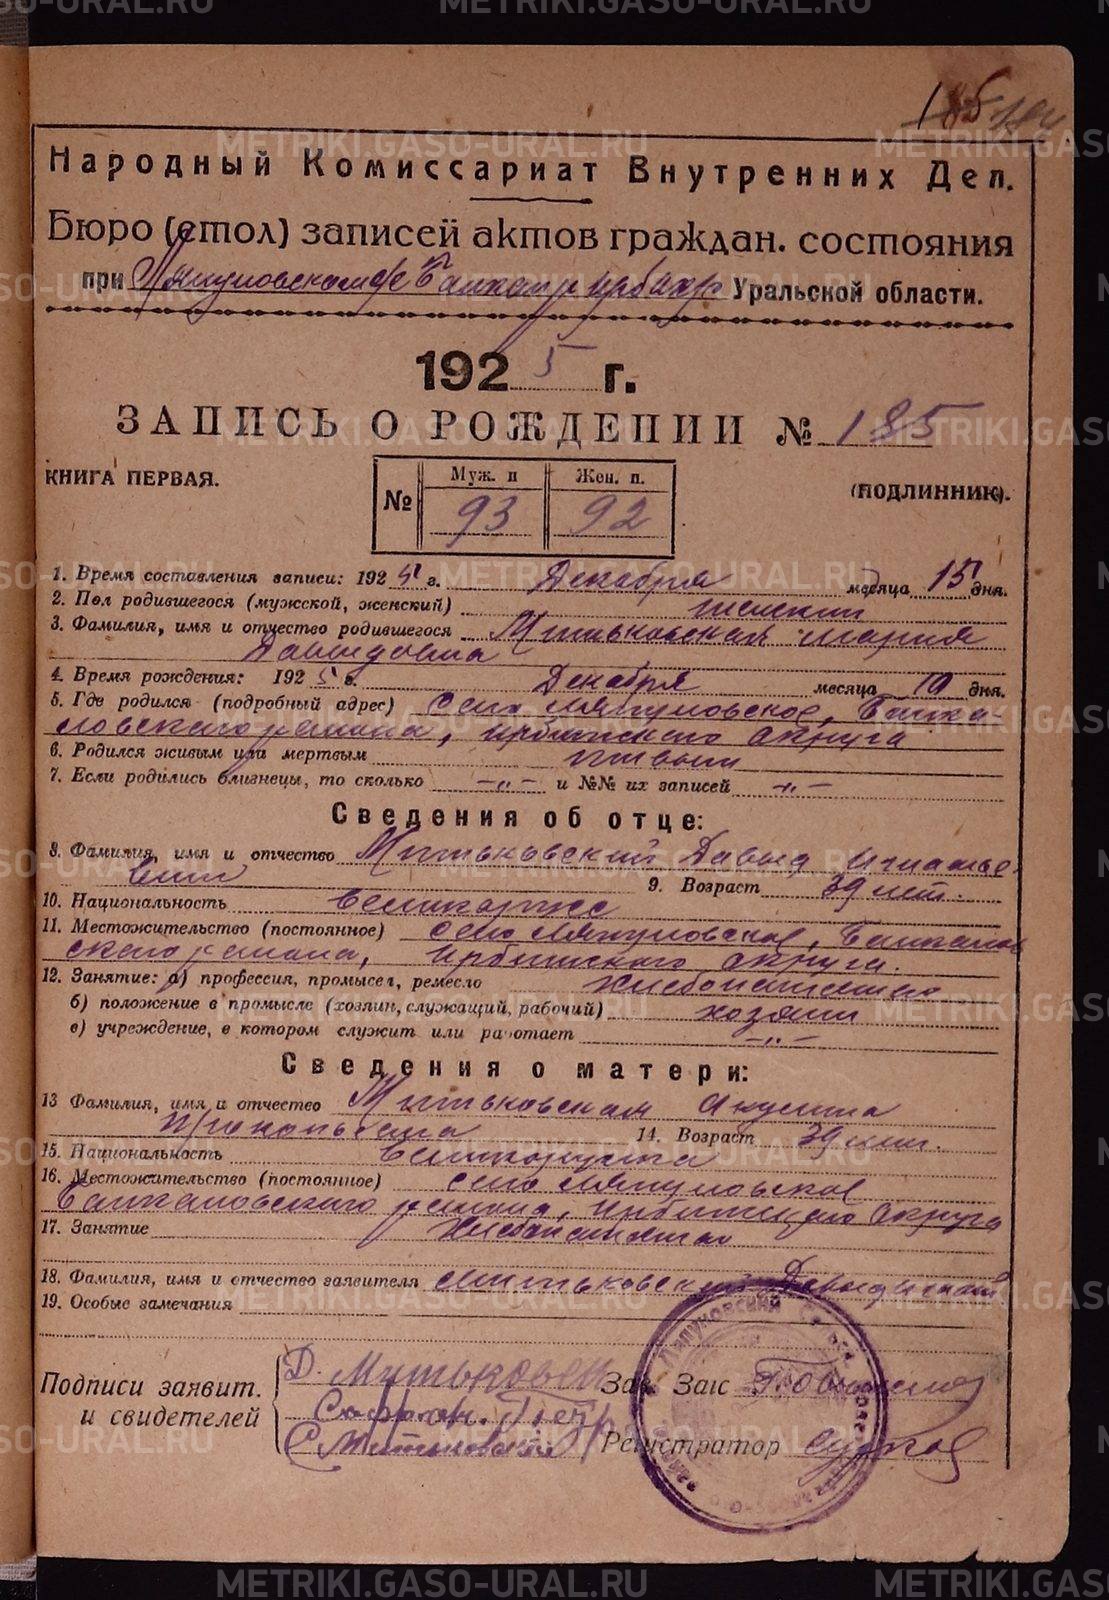 185
Народный Комиссариат Внутренних Дел.
Бюро (стол) записей актов граждан. состояния
при Ляпуновском Уральской области.
1925 г.
ЗАПИСЬ О РОЖДЕНИИ № 185
КНИГА ПЕРВАЯ.
(ПОДЛИННИК).
№
Муж. п Жен. п.
93 92
1. Время составления записи: 1925 г. Декабря месяца 15 дня.
2. Пол родившегося (мужской, женский) женский
3. Фамилия, имя и отчество родившегося Митьковская Мария
Давыдовна
4. Время рождения: 1925 г. Декабря месяца 10 дня.
5. Где родился (подробный адрес) Село Ляпуновское, Байка-
ловского района, Ирбитского Округа
6. Родился живым или мертвым живым
7. Если родились близнецы, то сколько —„— и №№ их записей —„—
Сведения об отце:
8. Фамилия, имя и отчество Митьковский Давыд Игнатье-
вич 9. Возраст 39 лет.
10. Национальность великорусс
11. Местожительство (постоянное) село Ляпуновское, Байкалов
ского района, Ирбитского Округа.
12. Занятие: а) профессия, промысел, ремесло Хлебопашество
б) положение в промысле (хозяин, служащий, рабочий) хозяин
в) учреждение, в котором служит или работает —„—
Сведения о матери:
13 Фамилия, имя и отчество Митьковская Акулина
Прокопьевна 14. Возраст 39 лет.
15. Национальность великорусска
16. Местожительство (постоянное) село Ляпуновское
Байкаловского района, Ирбитского Округа
17. Занятие Хлебопашество
18. Фамилия, имя и отчество заявителя Митьковский Давыд Игнат
19. Особые замечания
Подписи заявит.
и свидетелей
Д. Митьковск
Софрон. Петр
С Митьковский
Зав. Загс
Регистратор
METRIKI.GASO-URAL.RU